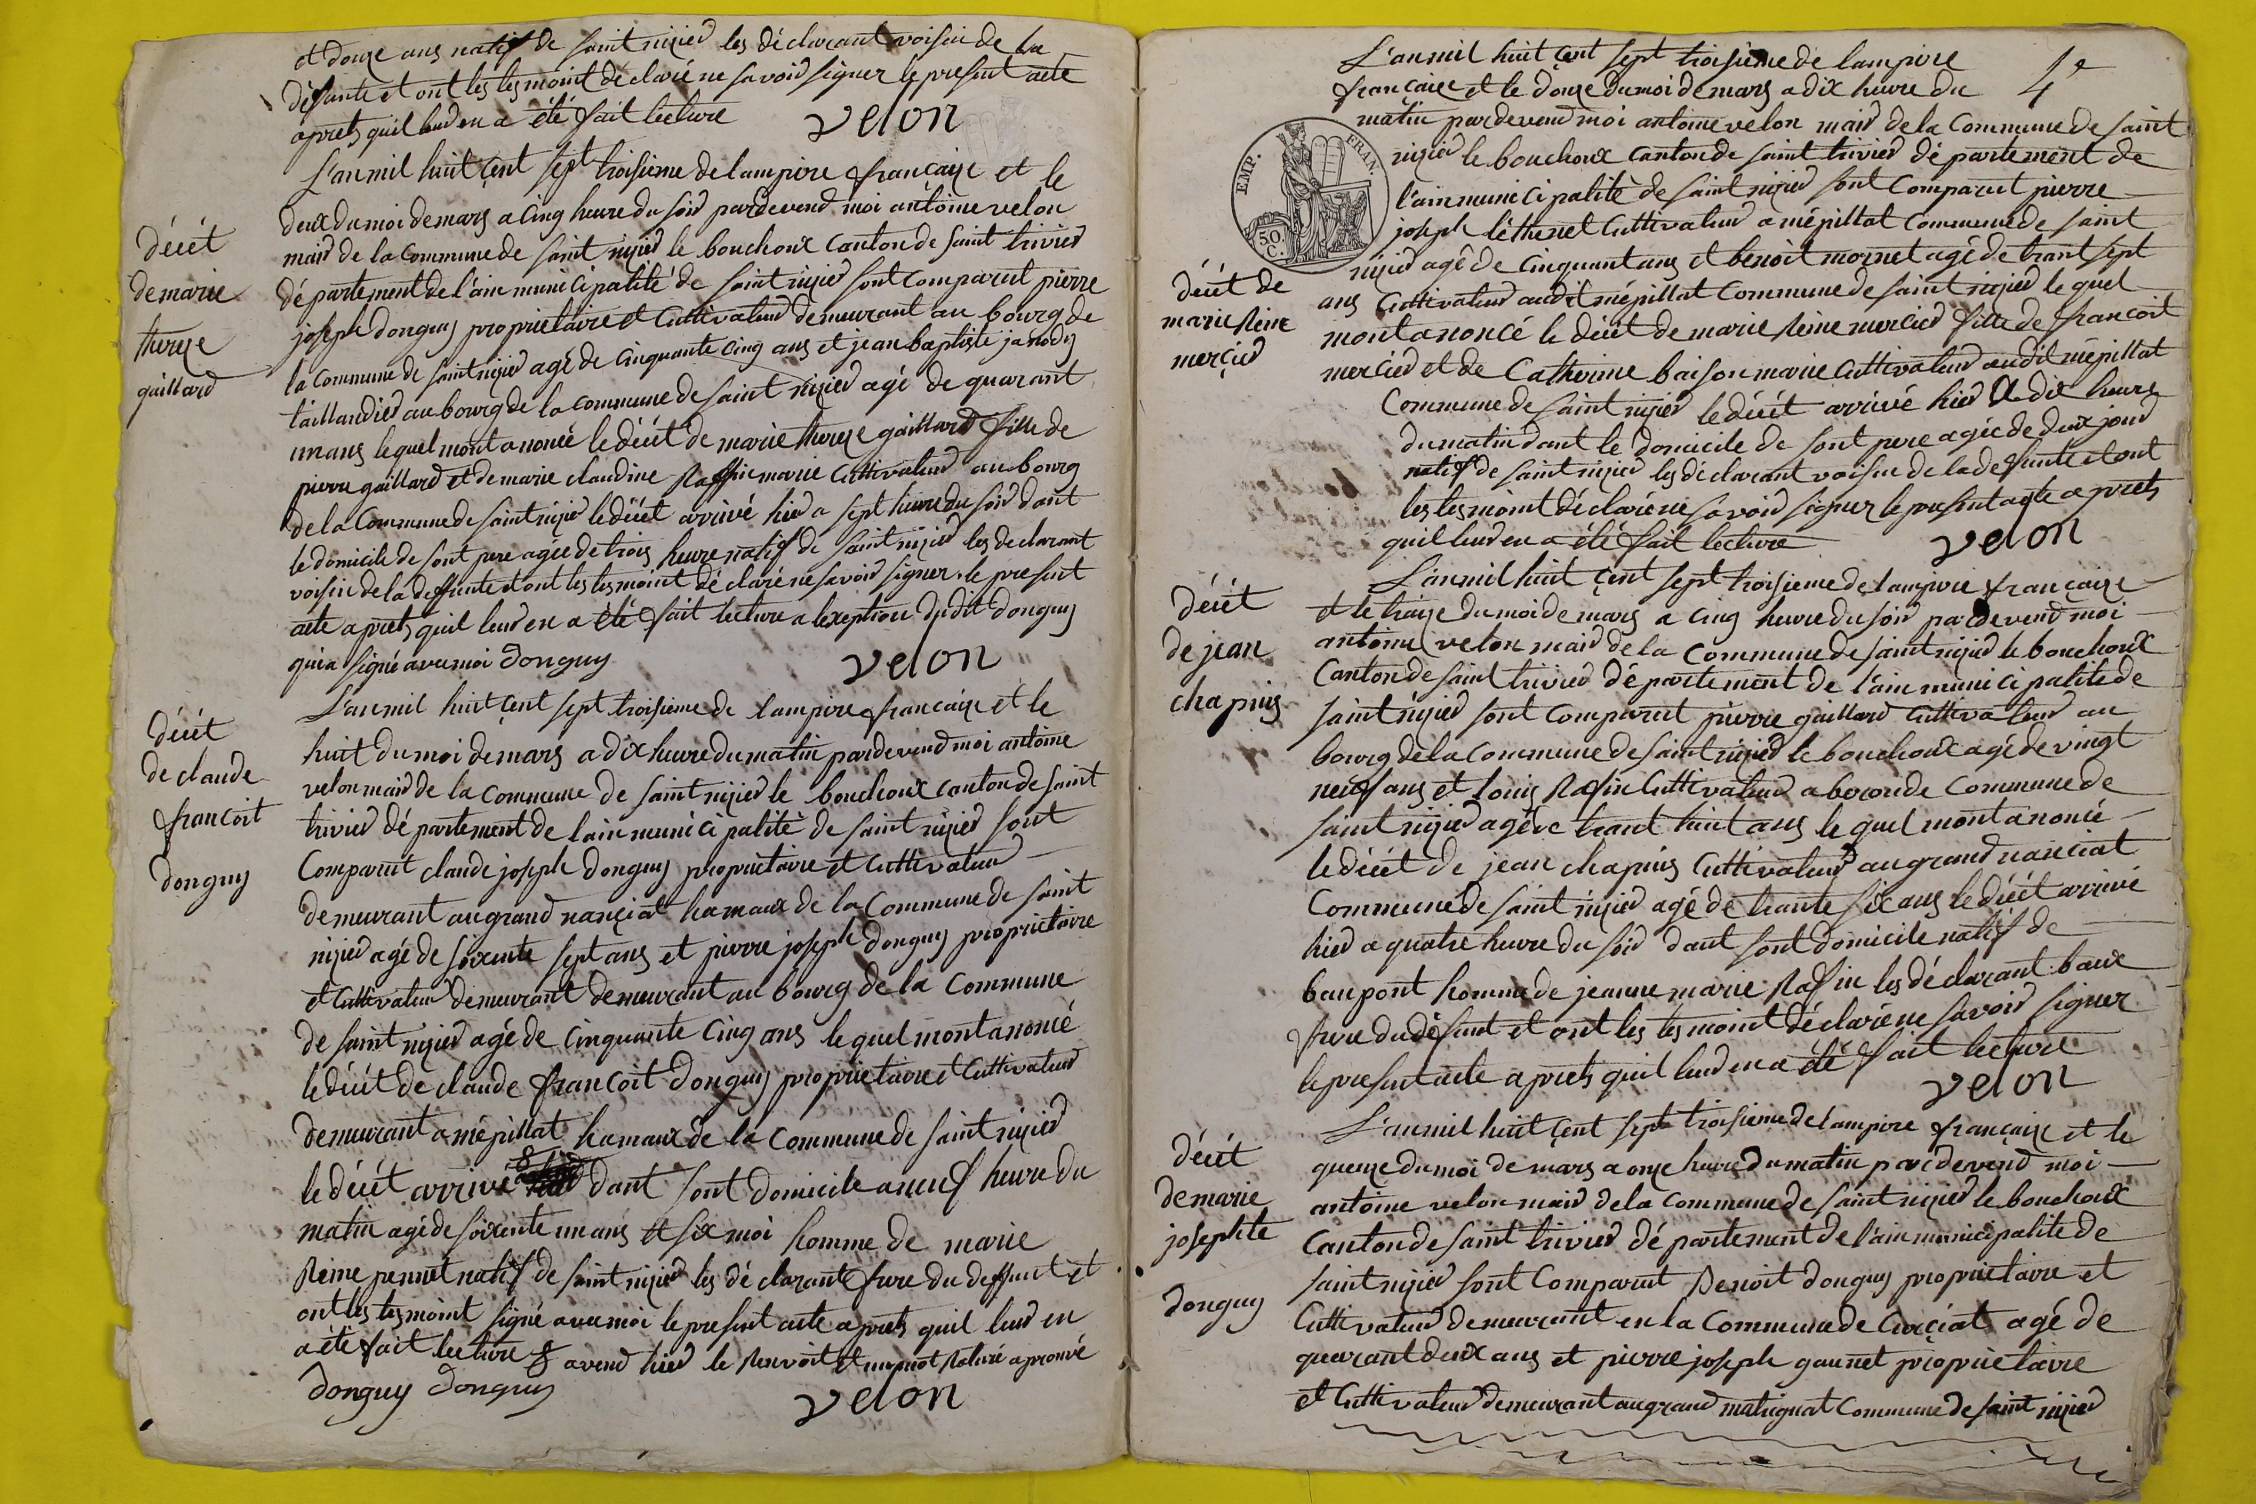 et douze ans natif de saint nizied les déclarant voisin de la
défunte et ont les tesmoint déclaré ne savoir signer le present acte
aprets quil leud en a été fait lecture velon
L'an mil huit çent sept troisieme de lampire françaize et le
deux du moi de mars a cinq heure du soid pardevend moi antoine velon
décét
de marie
thereze
gaillard
maid de la commune de saint nizied le bouchoux canton de saint trivied
département de l'ain municipalité de saint nizied sont comparut pierre
joseph donguy proprietaire et Cultivateud demeurant au bourg de
la commune de saint nizied agé de cinquante cinq ans et jean baptiste janody
taillandied au bourg de la commune de saint nizied agé de quarant
un ans lequel mont anoncé le décét de marie thereze gaillard fille de
pierre gaillard et de marie claudine Raffin marié Cultivateud au bourg
de la Commune de saint nizied le décét arrivé hied a sept heure du soid dant
le domicile de sont pere agée de trois heure natif de saint nizied les declarant
voisin de la deffunte et ont les tesmoint déclaré ne savoir signer le present
acte aprets quil leud en a été fait lecture a lexeption dudit donguy
qui a signé avec moi Donguy velon
L'an mil huit çent sept troisieme de lampire françaize et le
décét
de claude
francoit
donguy
huit du moi de mars a dix heure du matin pardevend moi antoine
velon maid de la commune de saint nizied le bouchoux canton de saint
trivied département de lain municipalité de saint nizied sont
Comparut claude joseph donguy proprietaire et Cultivateud
demeurant au grand nançiat hamaux de la Commune de saint
nizied agé de soixente sept ans et pierre joseph donguy proprietaire
et Cultivateud demeurant demeurant au bourg de la commune
de saint nizied agé de cinquante cinq ans lequel mont anoncé
le décét de claude francoit donguy proprietaire et Cultivateud
demeurant a mépillat hamaux de la commune de saint nizied
le décét arrivé dant sont domicile a neuf heure du
matin agé de soixente un ans et six moi homme de marie
Reine pennet natif de saint nizied les déclarant frere du deffunt et
ont les tesmoint signé avec moi le present acte aprets quil leud en
a été fait lecture avend hied le Renvoit et un mot Raturé aprouvé
Donguy Donguy velon
4e
L'an mil huit çent sept troisieme de lampire
françaize et le douze du moi de mars a dix heure du
matin pardevend moi antoine velon maid de la Commune de saint
EMP. FRAN.
50. C.
nizied le bouchoux canton de saint trivied département de
l'ain municipalité de saint nizied sont Comparut pierre
joseph léthenet Cultivateud a mépillat Commune de saint
nizied agé de cinquant ans et benoit mornet agé de trant sept
décét de
marie Reine
merçied
ans Cultivateud audit mépillat Commune de saint nizied lequel
mont anoncé le décét de marie Reine mercied fille de françoit
mercied et de Catherine baison marié Cultivateud audit mépillat
Commune de saint nizied le décét arrivé hied a dix heure
du matin dant le domicile de sont pere agée de deux jour
natif de saint nizied les déclarant voisin de la defunte et ont
les tesmoint déclaré ne savoir signer le present acte aprets
quil leud en a été fait lecture velon
L'an mil huit çent sept troisieme de lampire françaize
décét
de jean
chapuis
et le traize du moi de mars a cinq heure du soid pardevend moi
antoine velon maid de la Commune de saint nizied le bouchoux
Canton de saint trivied département de l'ain municipalité de
saint nizied sont comparut pierre gaillard Cultivateud au
bourg de la Commune de saint nizied le bouchoux agé de vingt
neuf ans et louis Rafin Cultivateud a beronde Commune de
saint nizied agé de trant huit ans lequel mont anoncé
le décét de jean chapuis Cultivateud au grand nanciat
Commune de saint nizied agé de trante six ans le décét arrivé
hied a quatre heure du soid dant sont domicile natif de
baupont homme de jeanne marie Rafin les déclarant baux
frere du défunt et ont les tesmoint déclaré ne savoir signer
le present acte aprets quil leud en a été fait lecture
velon
L'an mil huit çent sept troisieme de lampire françaize et le
décét
de marie
josephte
donguy
quenze du moi de mars a onze heure du matin pardevend moi
antoine velon maid de la commune de saint nizied le bouchoux
Canton de saint trivied département de l'ain municipalité de
saint nizied sont Comparut Benoit donguy proprietaire et
Cultivateud demeurant en la Commune de Curçiat agé de
quarant deux ans et pierre joseph gaunet proprietaire
et Cultivateud demeurant au grand matrignat Commune de saint nizied